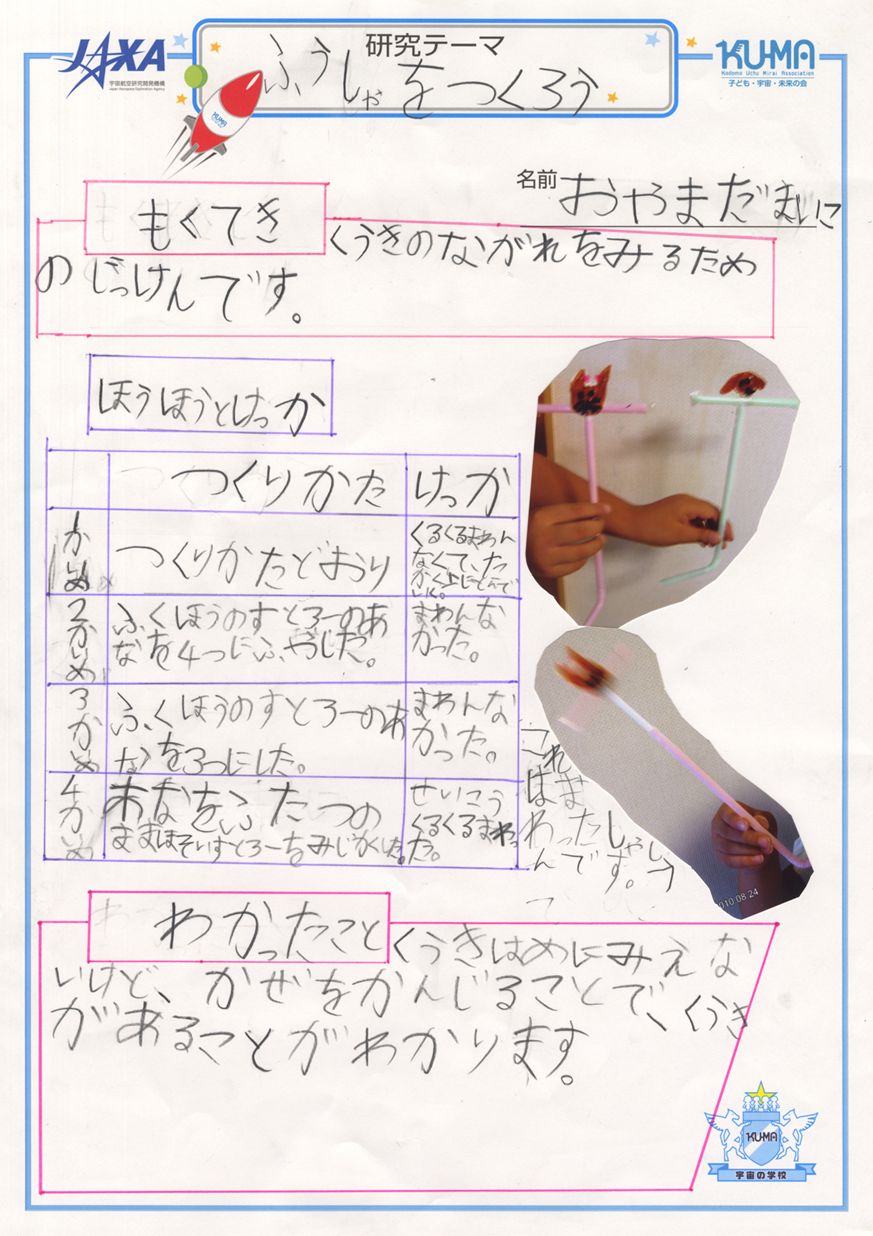 JAXA
宇宙航空研究開発機構
Japan Aerospace Exploration Agency
研究テーマ
ふうしゃをつくろう
KUMA
KU-MA
Kodomo Uchu Mirai Association
子ども・宇宙・未来の会
名前 おやまだまに
もくてき
くうきのながれをみるため
のじっけんです。
ほうほうとけっか
つくりかた けっか
1かいめ
つくりかたどおり
くるくるまわん
なくて、た
2かいめ
ふくほうのすとろーのあ
なを4つにふやした。
まわんな
かった。
3かいめ
ふくほうのすとろーのあ
なを3つにした。
まわんな
かった。
4かいめ
あなをふたつの
ままほそいすとろーをみじかくした。
せいこう
くるくるまわっ
た。
これ
はま
わったしゃし
んです。
2010.08.24
わかったこと
くうきはめにみえな
いけど、かぜをかんじることで、くうき
があることがわかります。
KU-MA
宇宙の学校